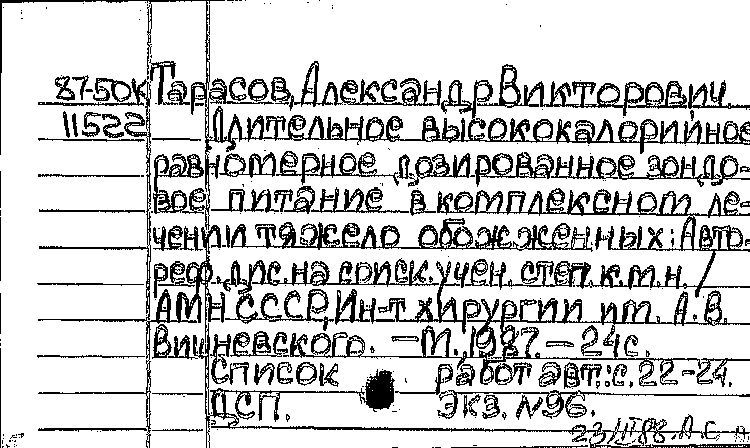 87-50к Тарасов, Александр Викторович.
11522 Длительное высококалорийное
равномерное дозированное зондо-
вое питание в комплексном ле-
чении тяжело обожженных: Авто-
реф. дис. на соиск. учен. степ. к.м.н. /
АМН СССР, Ин-т хирургии им. А.В.
Вишневского. — М., 1987. — 24 с.
Список работ авт.: с. 22-24.
ДСП. Экз. №96.